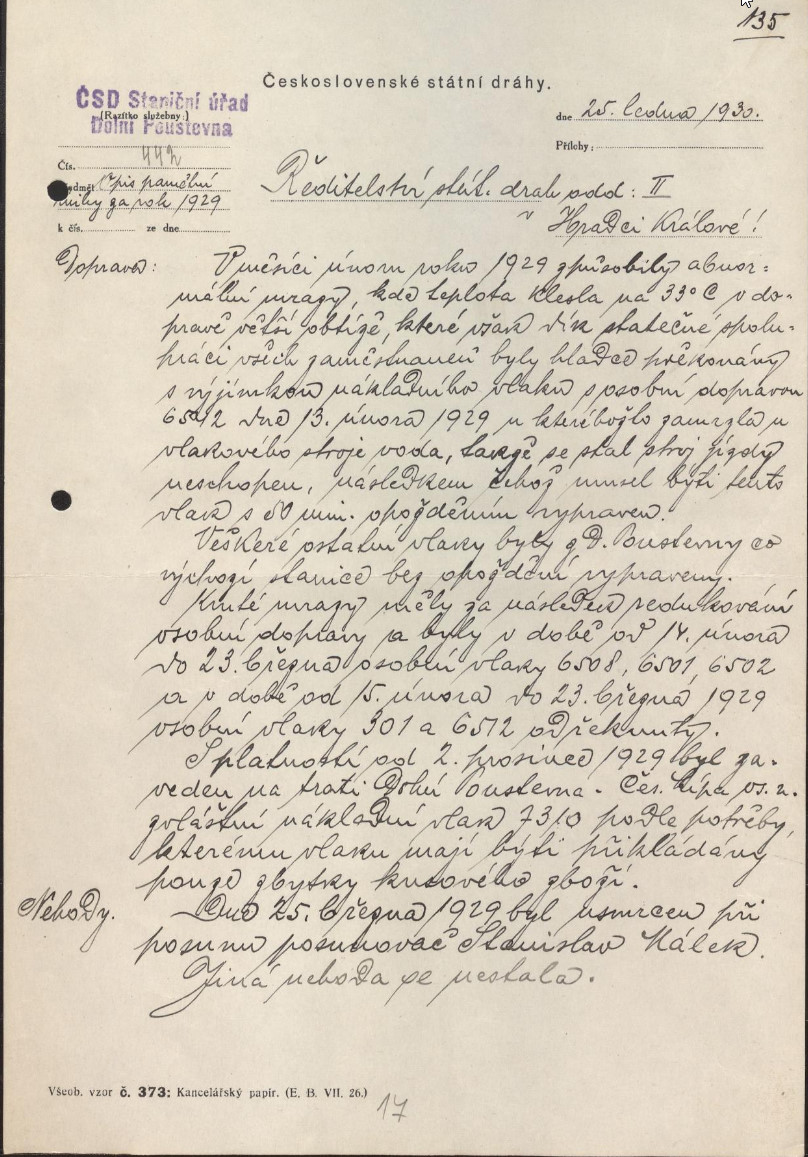 135
Československé státní dráhy.
ČSD Staniční úřad
(Razítko služebny:)
Dolní Poustevna
dne 25. ledna 1930.
442
Přílohy:
Čís.
Předmět Opis pamětní
knihy za rok 1929
k čís. ze dne
Ředitelství stát. drah odd: II
v Hradci Králové!
Doprava: V měsíci únoru roku 1929 způsobily abnor-
mální mrazy, kde teplota klesla na 33° C v do-
pravě větší obtíže, které však dík statečné spolu-
práci všech zaměstnanců byly hladce překonány
s výjimkou nákladního vlaku s osobní dopravou
6512 dne 13. února 1929 u kteréhožto zamrzla u
vlakového stroje voda, takže se stal stroj jízdy
neschopen, následkem čehož musel býti tento
vlak s 80 min. opožděním vypraven.
Veškeré ostatní vlaky byly z D. Poustevny co
výchozí stanice bez opoždění vypraveny.
Kruté mrazy měly za následek redukování
osobní dopravy a byly v době od 14. února
do 23. března osobní vlaky 6508, 6501, 6502
a v době od 15. února do 23. března 1929
osobní vlaky 301 a 6512 odřeknuty.
S platností od 2. prosince 1929 byl za-
veden na trati Dolní Poustevna - Čes. Lípa os. n.
zvláštní nákladní vlak 7310 podle potřeby,
kterému vlaku mají býti přikládány
pouze zbytky kusového zboží.
Nehody. Dne 25. března 1929 byl usmrcen při
posunu posunovač Stanislav Málek.
Jiná nehoda se nestala.
Všeob. vzor č. 373: Kancelářský papír. (E. B. VII. 26.)
17